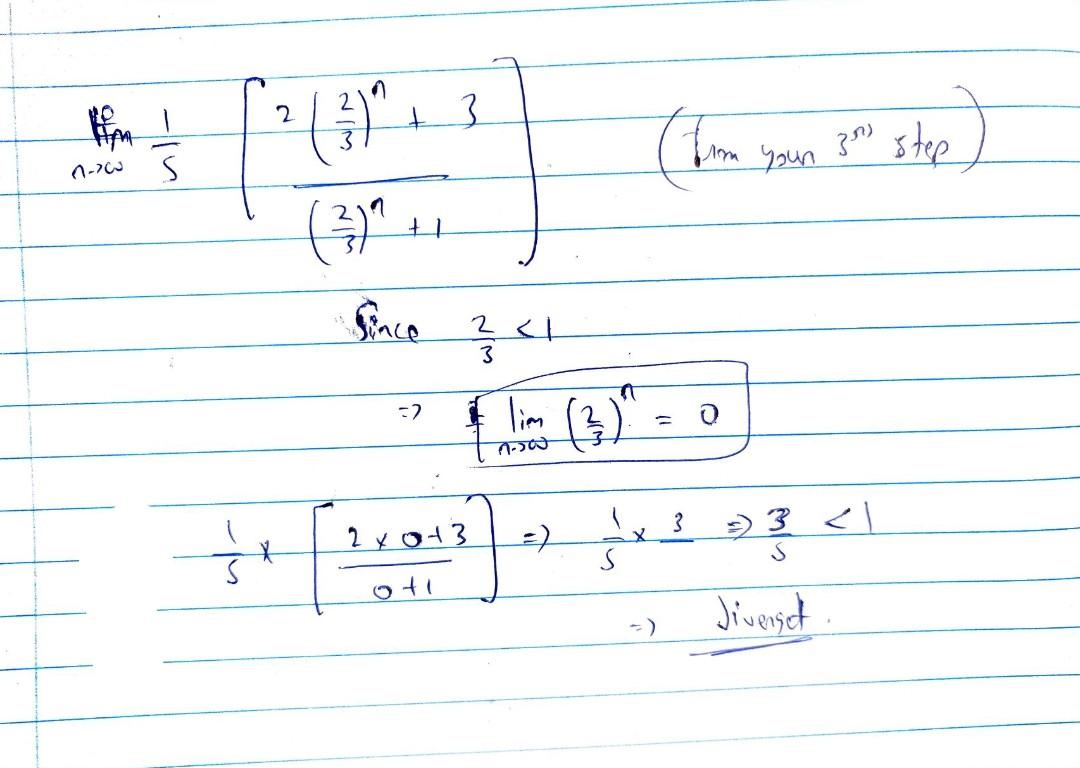 lim n->∞ 1/5 [ (2 (2/3)^n + 3) / ((2/3)^n + 1) ] (From your 3rd step)
Since 2/3 < 1
=> lim n->∞ (2/3)^n = 0
1/5 x [ (2 x 0+3) / (0+1) ] => 1/5 x 3 => 3/5 < 1
=>